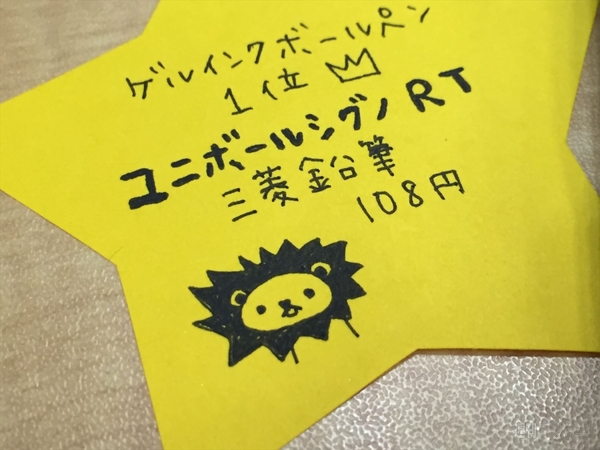 ゲルインクボールペン
1位
ユニボールシグノ RT
三菱鉛筆
108円